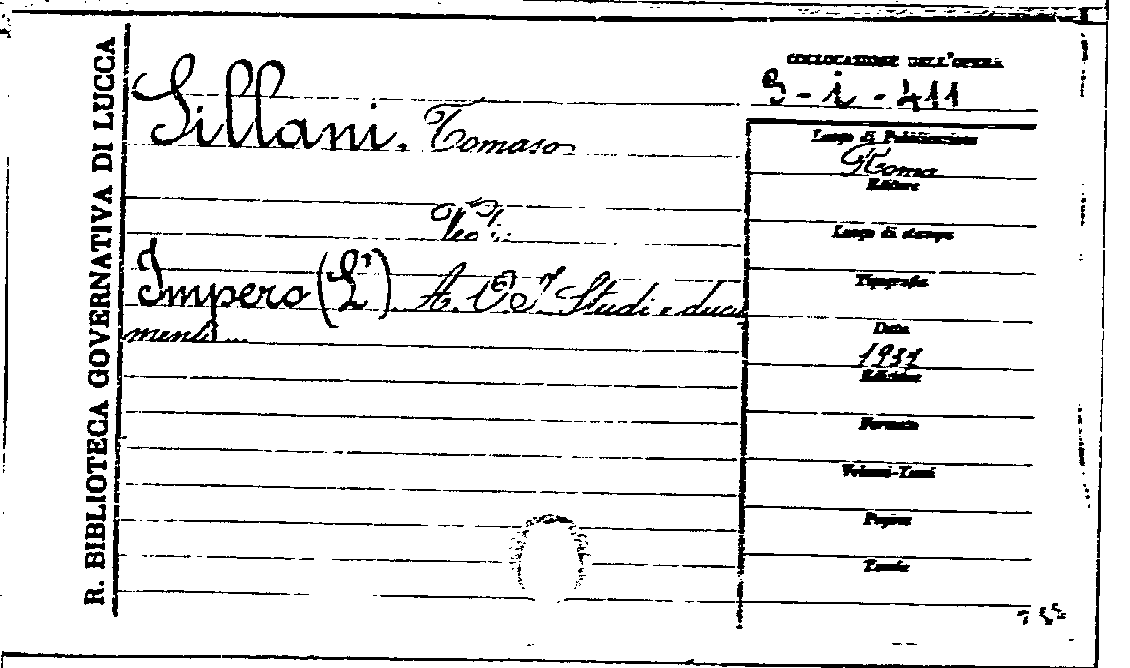 R. BIBLIOTECA GOVERNATIVA DI LUCCA
COLLOCAZIONE DELL'OPERA
9-i-411
Sillani. Tomaso
Vedi:
Impero (L') A. O. I. Studi e docu
menti...
Luogo di Pubblicazione
Roma
Editore
Luogo di stampa
Tipografia
Data
1937
Edizione
Formato
Volumi-Tomi
Pagine
Tavole